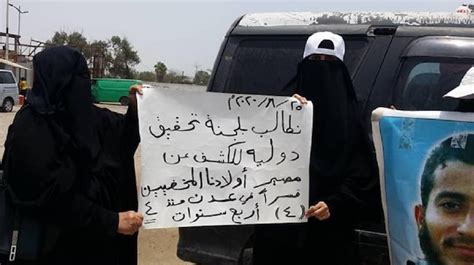 ٢٥/٨/٢٠٢٠م
نطالب بلجنة تحقيق
دولية للكشف عن
مصير أولادنا المخفيين
قسراً في عدن منذ
(٤) أربع سنوات